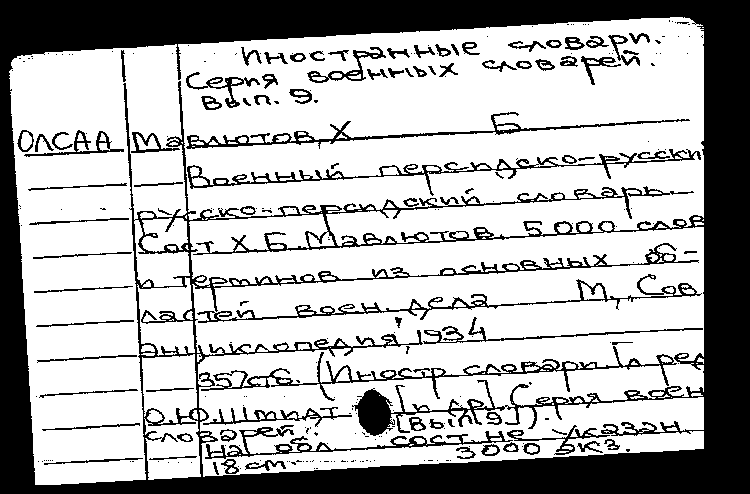 Иностранные словари.
Серия военных словарей.
Вып. 9.
ОЛСАА Мавлютов, Х Б
Военный персидско-русский
русско-персидский словарь.
Сост Х. Б. Мавлютов. 5000 слов
и терминов из основных об-
ластей воен. дела М., „Сов
энциклопедия', 1934
357стб. (Иностр словари. П ред
О.Ю.Шмидт [и др]. Серия воен
словарей. [Вып 9]).
На обл сост не указан.
18 см. 3000 экз.